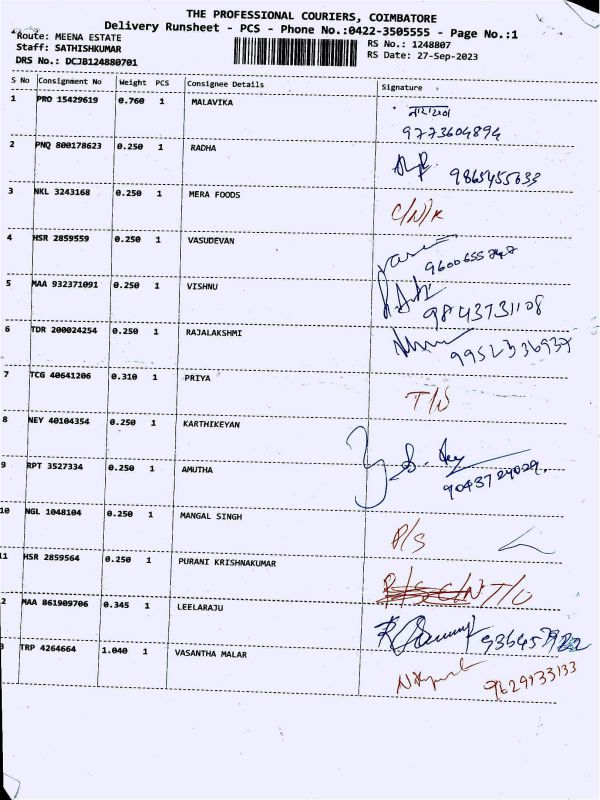 THE PROFESSIONAL COURIERS, COIMBATORE
Delivery Runsheet - PCS - Phone No.:0422-3505555 - Page No.:1
Route: MEENA ESTATE
Staff: SATHISHKUMAR
DRS No.: DCJB124880701
RS No.: 1248807
RS Date: 27-Sep-2023
S No Consignment No Weight PCS Consignee Details Signature
1 PRO 15429619 0.760 1 MALAVIKA
9773604894
2 PNQ 800178623 0.250 1 RADHA
9865455633
3 NKL 3243168 0.250 1 MERA FOODS C/N/R
4 HSR 2859559 0.250 1 VASUDEVAN
9600655747
5 MAA 932371091 0.250 1 VISHNU
9843731108
6 TDR 200024254 0.250 1 RAJALAKSHMI
9952336937
7 TCG 40641206 0.310 1 PRIYA T/S
8 NEY 40104354 0.250 1 KARTHIKEYAN
9 RPT 3527334 0.250 1 AMUTHA
9043724029.
10 NGL 1048104 0.250 1 MANGAL SINGH P/S
11 HSR 2859564 0.250 1 PURANI KRISHNAKUMAR T/O
2 MAA 861909706 0.345 1 LEELARAJU
3 TRP 4264664 1.040 1 VASANTHA MALAR
9629933133